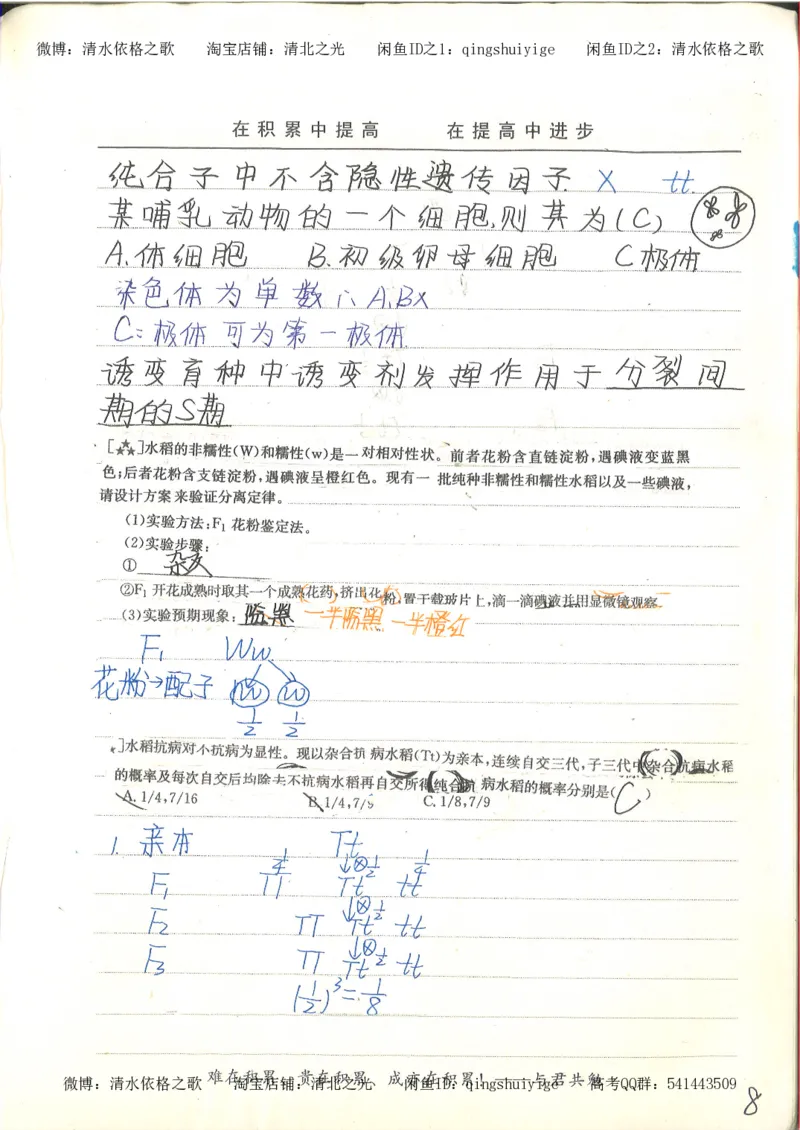 微博：清水依格之歌 淘宝店铺：清北之光 闲鱼ID之1：qingshuiyige 闲鱼ID之2：清水依格之歌
在积累中提高 在提高中进步
纯合子中不含隐性遗传因子 X tt.
某哺乳动物的一个细胞,则其为(C)
A.体细胞 B.初级卵母细胞 C极体
染色体为单数∴A,B×
C:极体可为第一极体
诱变育种中诱变剂发挥作用于分裂间
期的S期
[★★★]水稻的非糯性(W)和糯性(w)是一对相对性状。前者花粉含直链淀粉,遇碘液变蓝黑
色;后者花粉含支链淀粉,遇碘液呈橙红色。现有一 批纯种非糯性和糯性水稻以及一些碘液,
请设计方案来验证分离定律。
(1)实验方法:F₁ 花粉鉴定法。
(2)实验步骤:
① 杂交
②F₁ 开花成熟时取其一个成熟花药,挤出花粉,置于载玻片上,滴一滴碘液并用显微镜观察.
(3)实验预期现象: 一半蓝黑 一半橙红
F₁ Ww
花粉→配子 W w
1/2 1/2
★]水稻抗病对不抗病为显性。现以杂合抗 病水稻(Tt)为亲本,连续自交三代,子三代中杂合抗病水稻
的概率及每次自交后均除去不抗病水稻再自交所得纯合抗 病水稻的概率分别是( C )
A. 1/4,7/16 B.1/4,7/9 C. 1/8,7/9
1. 亲本 Tt
↓⊗ 1/2
F₁ 1/4 TT Tt 1/4 tt
↓⊗ 1/2
F₂ TT Tt tt
↓⊗ 1/2
F₃ TT Tt tt
(1/2)³=1/8
难在积累、贵在积累、成亦在积累！——与君共勉
微博：清水依格之歌 淘宝店铺：清北之光 闲鱼ID：qingshuiyige 高考QQ群：541443509
8